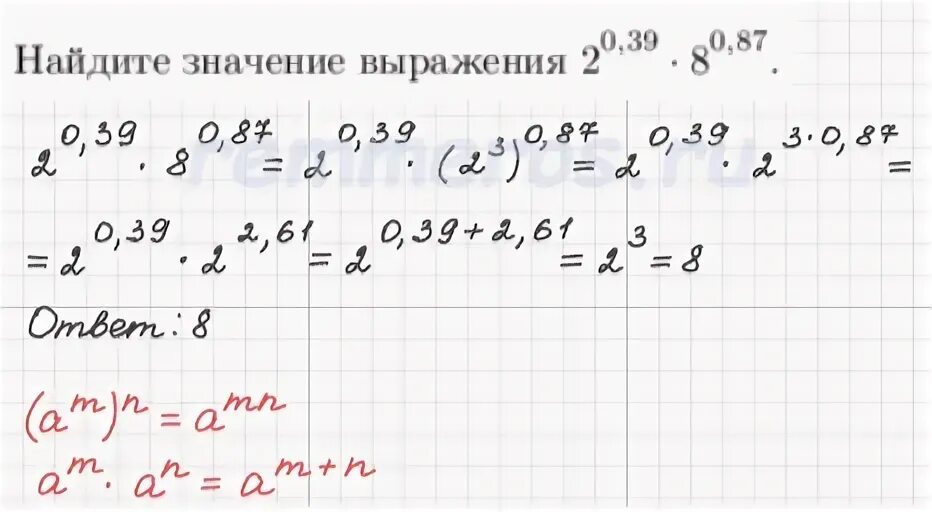 Найдите значение выражения 2^0,39 · 8^0,87.
2^0,39 · 8^0,87 = 2^0,39 · (2^3)^0,87 = 2^0,39 · 2^3·0,87 =
= 2^0,39 · 2^2,61 = 2^0,39+2,61 = 2^3 = 8
Ответ: 8
(a^m)^n = a^mn
a^m · a^n = a^m+n